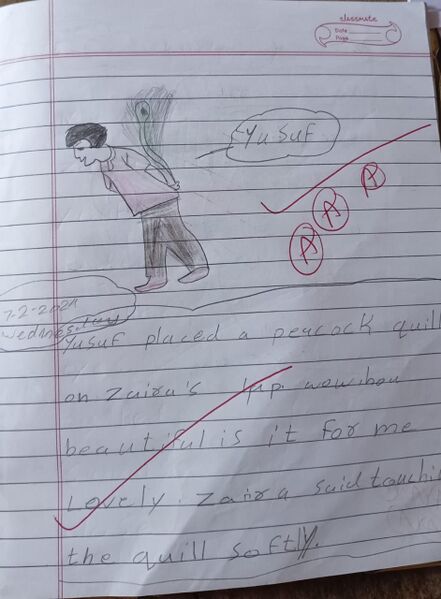 classmate
Date
Page
Yusuf
A A A
7-2-2024
Wednesday
Yusuf placed a peacock quill
on Zaira's
beautiful is it for me
Lovely. Zaira said touchin
the quill softly.